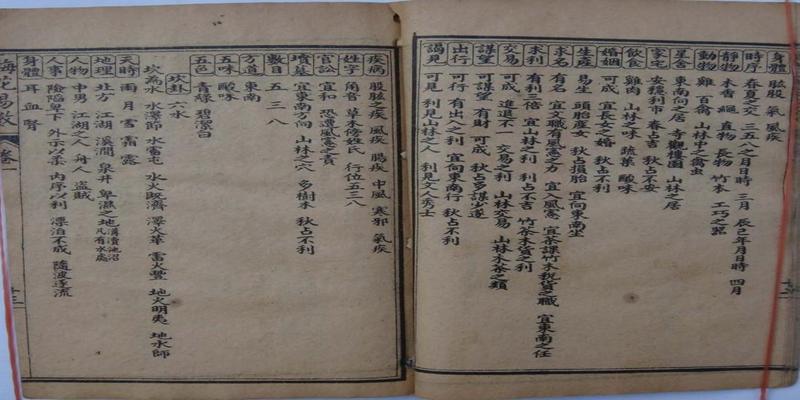 身體 股肱 氣 風疾
時序 春夏之交 三五八之月日時 三月 辰巳年月日時 四月
靜物 木香 繩 直物 長物 竹木 工巧之器
動物 雞 百禽 山林中之禽虫
屋舍 東南向之居 寺觀樓園 山林之居
家宅 安穩利市 春占吉 秋占不安
飲食 雞肉 山林之味 蔬菜 酸味
婚姻 可成 宜長女之婚 秋占不利
生產 易生 頭胎產女 秋占損胎 宜向東南坐
求名 有名 宜文職有風憲之力 宜入風憲 宜茶課竹木稅貨之職 宜東南之任
求利 有利三倍 宜山林之利 秋占不吉 竹茶木貨之利
交易 可成 進退不一 交易之利 山林交易 山林木茶之類
謀望 可謀望 有財 可成 秋占多謀少遂
出行 可行 有出入之利 宜向東南行 秋占不利
謁見 可見 利見山林之人 利見文人秀士
疾病 股肱之疾 風疾 腸疾 中風 寒邪 氣疾
姓字 角音 草木傍姓氏 行位五三八
官訟 宜和 恐遭風憲之責
墳墓 宜東南方向 山林之穴 多樹木 秋占不利
數目 五 三 八
方道 東南
五味 酸味
五色 青綠 碧潔白
坎卦 六水
坎為水 水澤節 水雷屯 水火既濟 澤火革 雷火豐 地火明夷 地水師
天時 雨 月 雪 霜 露
地理 北方 江湖 溪澗 泉井 卑濕之地 溝瀆池沼凡有水處
人物 中男 江湖之人 舟人 盜賊
人事 險陷卑下 外示以柔 內序以利 漂泊不成 隨波逐流
身體 耳 血 腎
梅花易數 卷一